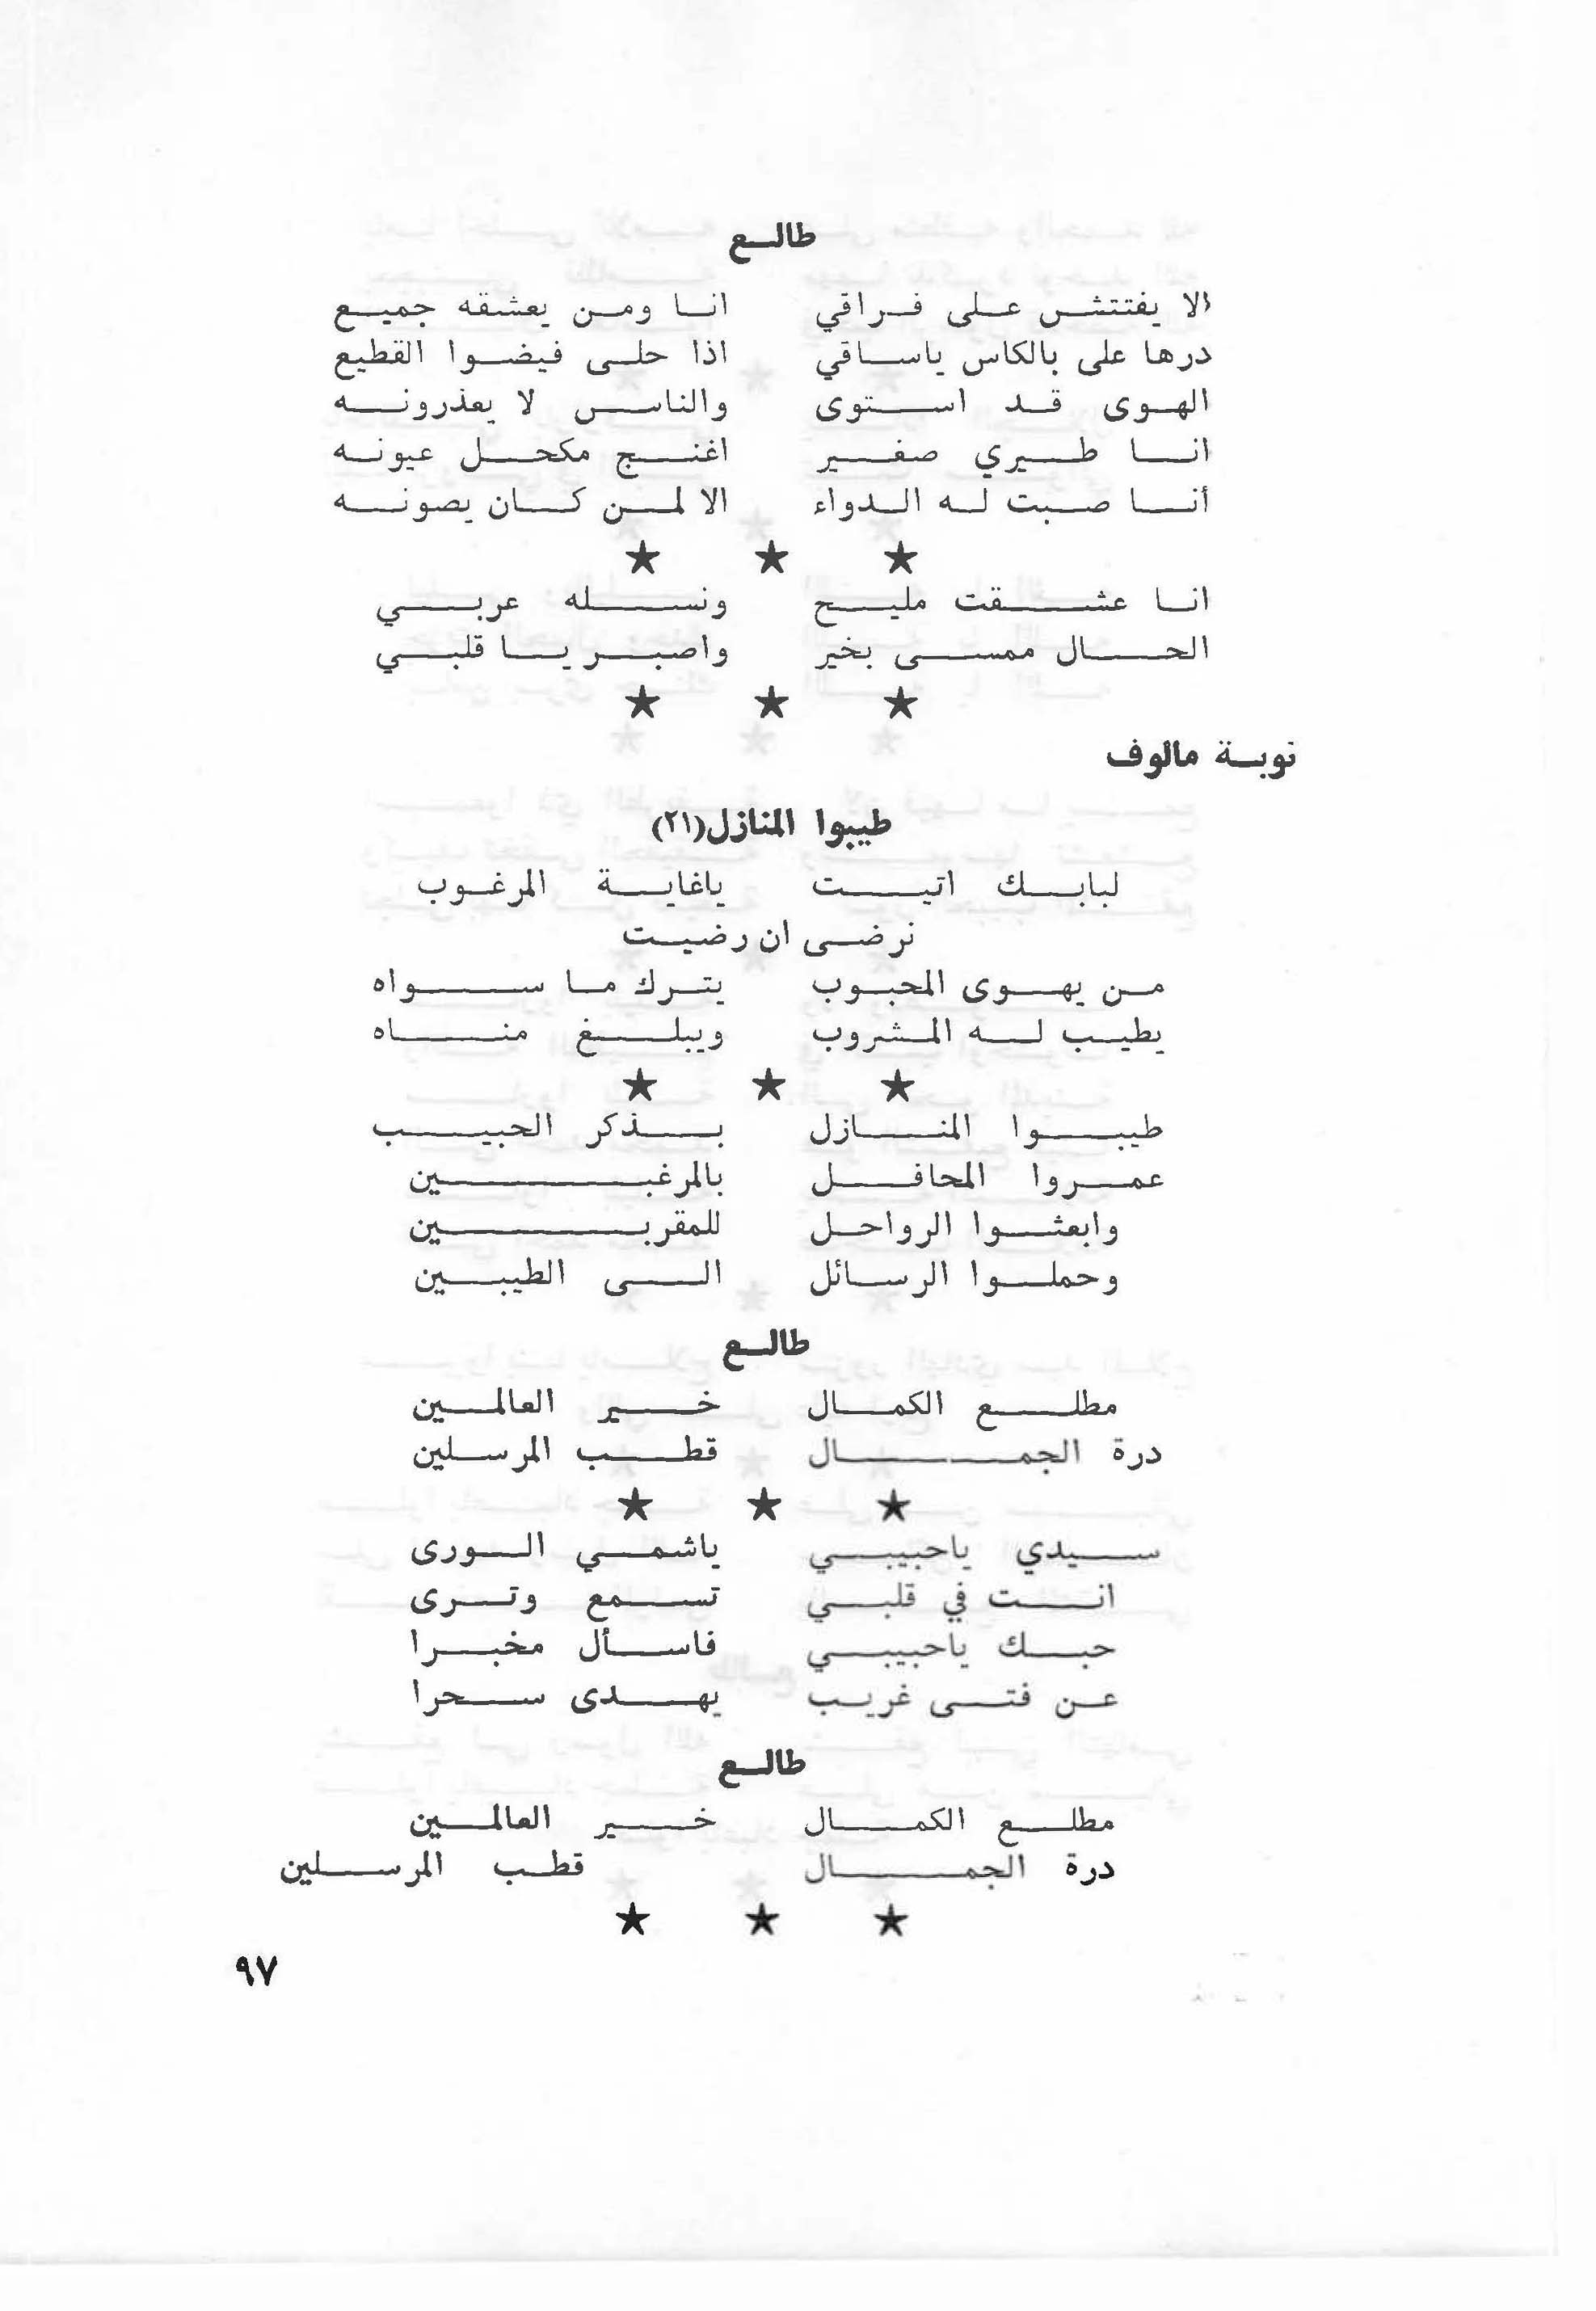 طالع
الا يفتتش على فراقي انا ومن يعشقه جميع
درها على بالكاس ياساقي اذا حلى فيضوا القطيع
الهوى قد استوى والناس لا يعذرونه
انا طيري صغير اغنج مكحل عيونه
أنا صبت له الدواء الا لمن كان يصونه
★ ★ ★
انا عشقت مليح ونسله عربي
الحال ممسى بخير واصبر يا قلبي
★ ★ ★
نوبة مالوف
طيبوا المنازل(٢١)
لبابك اتيت ياغاية المرغوب
نرضى ان رضيت
من يهوى المحبوب يترك ما سواه
يطيب له المشروب ويبلغ مناه
★ ★ ★
طيبوا المنازل بذكر الحبيب
عمروا المحافل بالمرغبين
وابعثوا الرواحل للمقربين
وحملوا الرسائل الى الطيبين
طالع
مطلع الكمال خير العالمين
درة الجمال قطب المرسلين
★ ★ ★
سيدي ياحبيبي ياشمي الورى
انت في قلبي تسمع وترى
حبك ياحبيبي فاسأل مخبرا
عن فتى غريب يهدى سحرا
طالع
مطلع الكمال خير العالمين
درة الجمال قطب المرسلين
★ ★ ★
٩٧